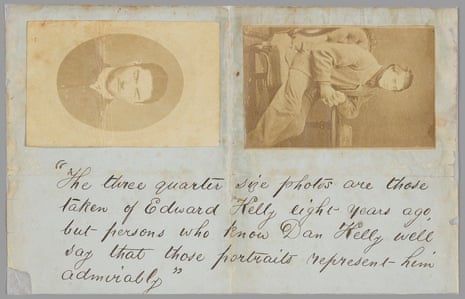 "The three quarter size photos are those
taken of Edward Kelly eight years ago,
but persons who know Dan Kelly well
say that those portraits represent him
admirably"